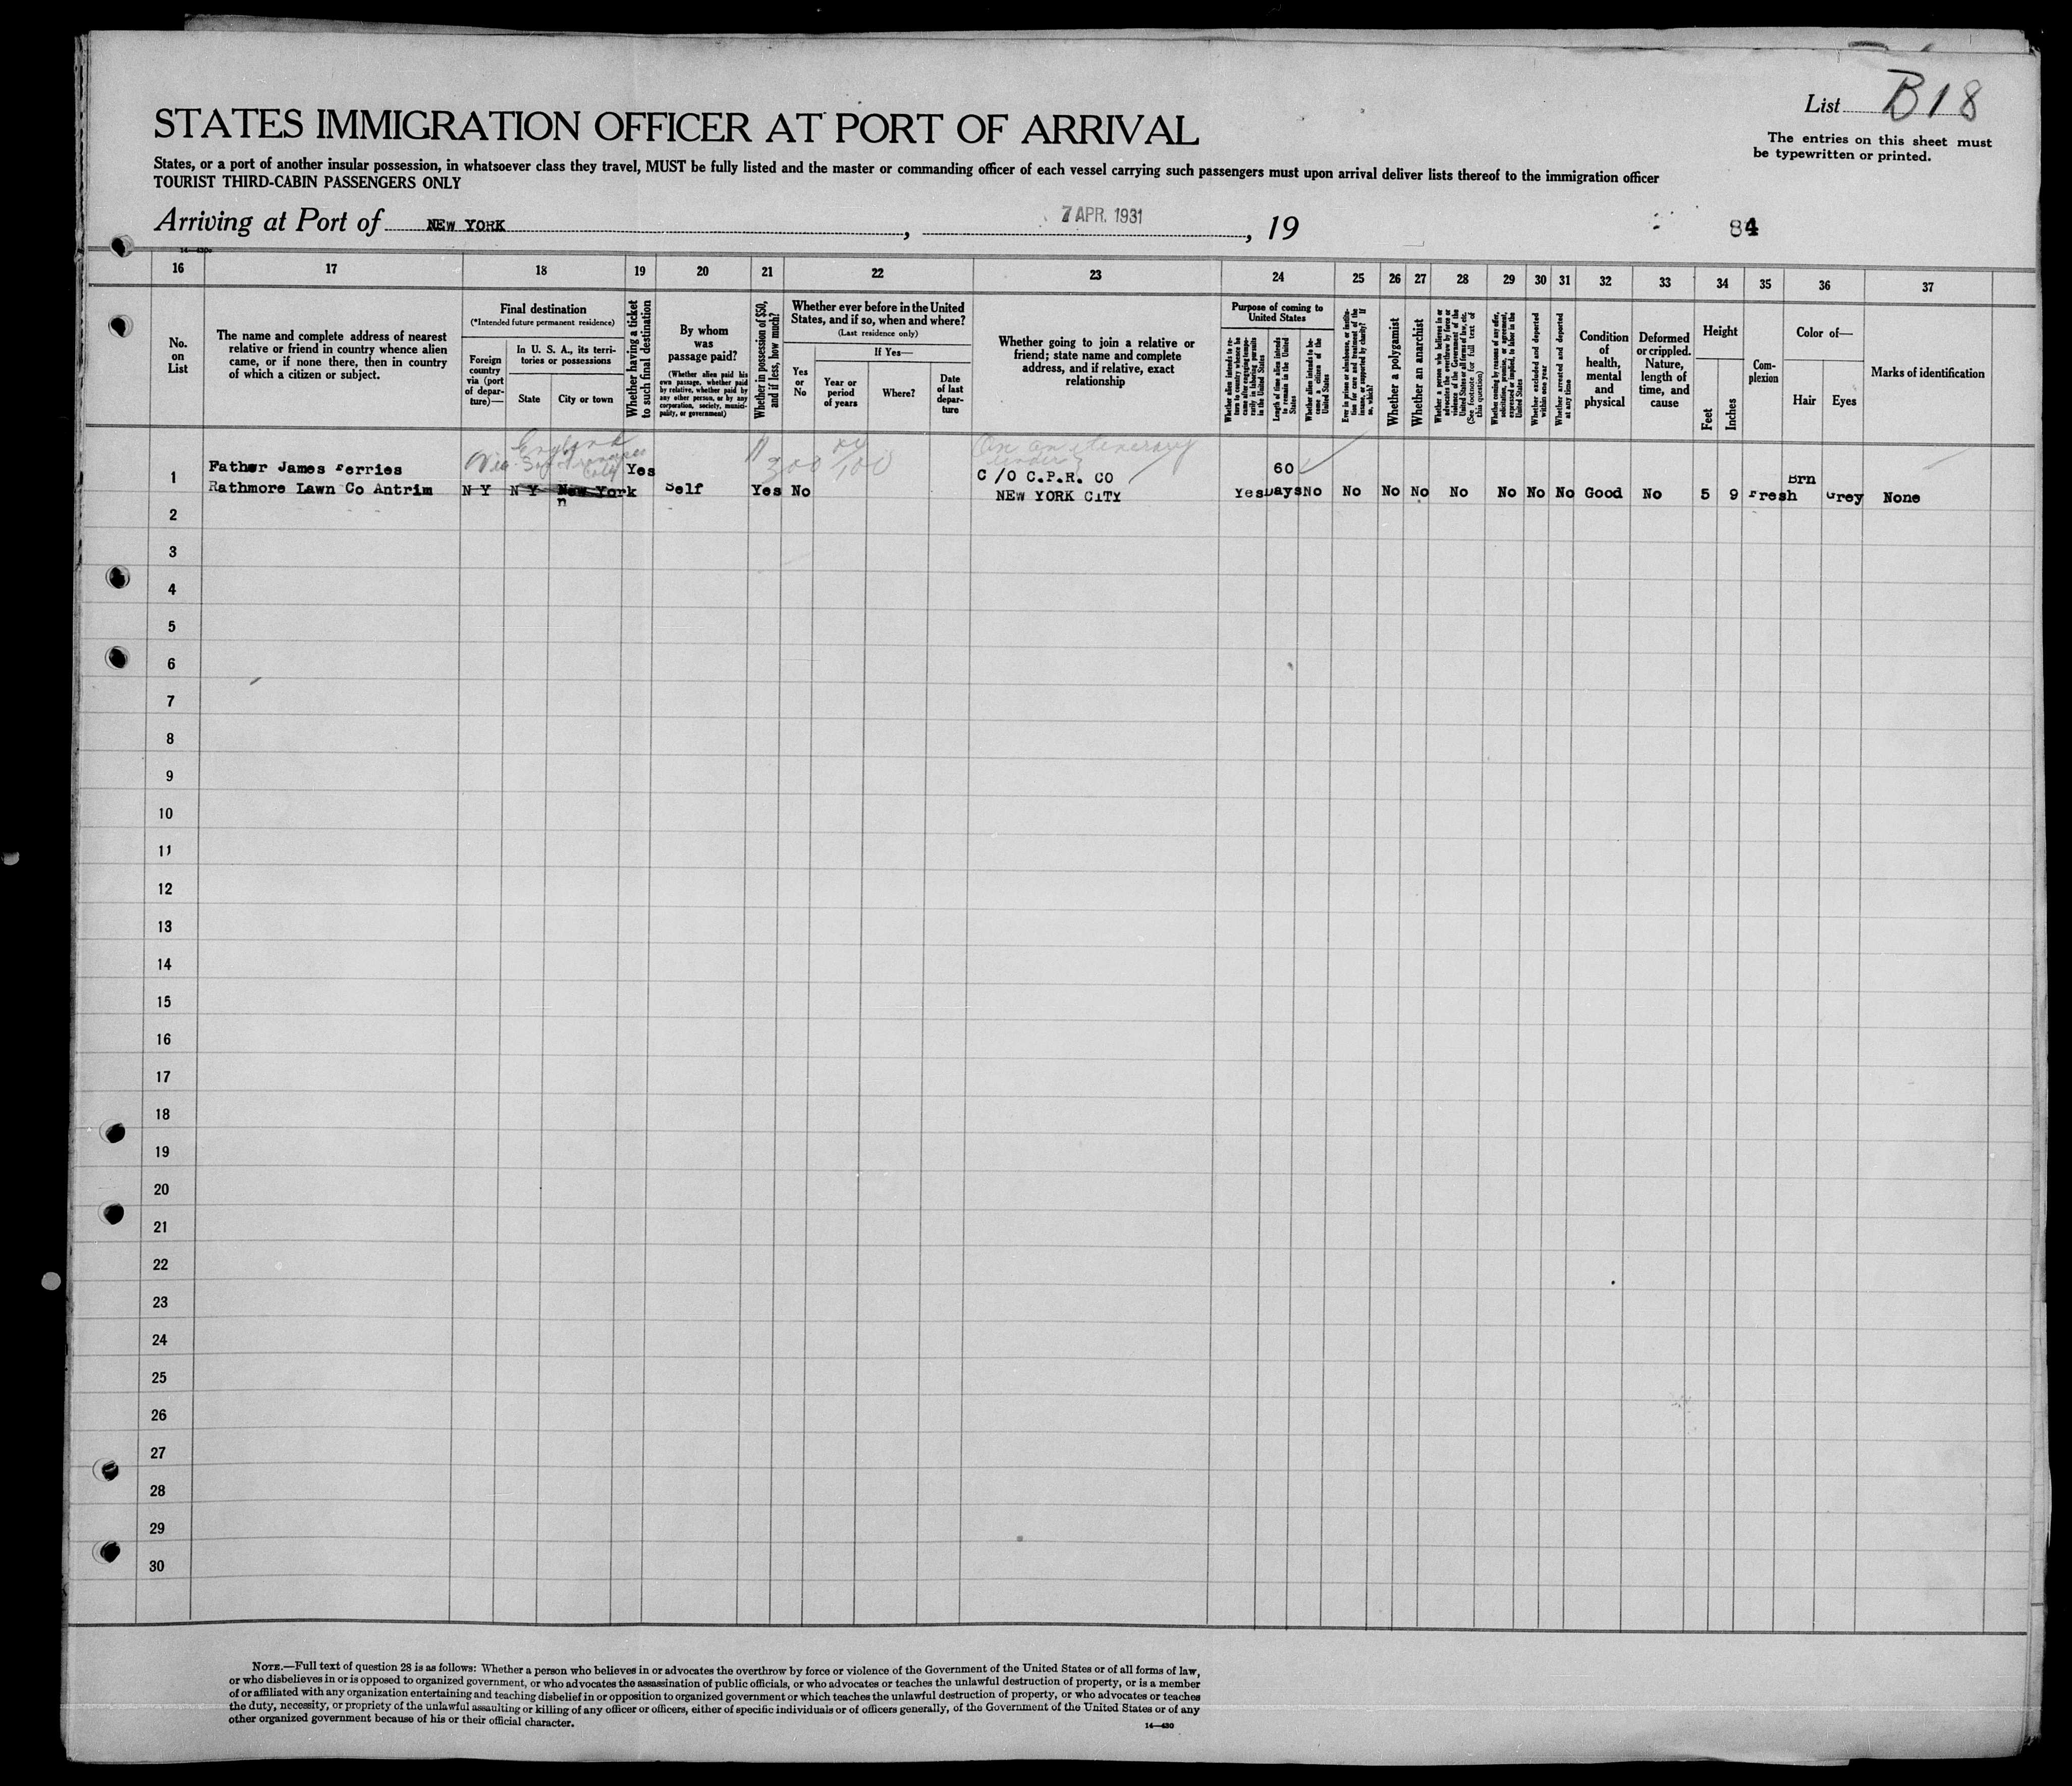 List B18
The entries on this sheet must
be typewritten or printed.
STATES IMMIGRATION OFFICER AT PORT OF ARRIVAL
States, or a port of another insular possession, in whatsoever class they travel, MUST be fully listed and the master or commanding officer of each vessel carrying such passengers must upon arrival deliver lists thereof to the immigration officer
TOURIST THIRD-CABIN PASSENGERS ONLY
Arriving at Port of NEW YORK , 7 APR. 1931 , 19 84
16 17 18 19 20 21 22 23 24 25 26 27 28 29 30 31 32 33 34 35 36 37
No.
on
List
The name and complete address of nearest
relative or friend in country whence alien
came, or if none there, then in country
of which a citizen or subject.
Final destination
(*Intended future permanent residence)
Foreign
country
via (port
of depar-
ture)—
In U. S. A., its terri-
tories or possessions
State
City or town
Whether having a ticket
to such final destination
By whom
was
passage paid?
(Whether alien paid his
own passage, whether paid
by relative, whether paid by
any other person, or by any
corporation, society, munici-
pality, or government)
Whether in possession of $50,
and if less, how much?
Whether ever before in the United
States, and if so, when and where?
(Last residence only)
Yes
or
No
If Yes—
Year or
period
of years
Where?
Date
of last
depar-
ture
Whether going to join a relative or
friend; state name and complete
address, and if relative, exact
relationship
Purpose of coming to
United States
Whether alien intends to re-
turn to country whence he
came after engaging tempo-
rarily in laboring pursuits
in the United States
Length of time alien intends
to remain in the United
States
Whether alien intends to be-
come a citizen of the
United States
Ever in prison or almshouse, or institu-
tion for care and treatment of the
insane, or supported by charity? If
so, which?
Whether a polygamist
Whether an anarchist
Whether a person who believes in or
advocates the overthrow by force or
violence of the Government of the
United States or all forms of law, etc.
(See footnote for full text of
this question)
Whether coming by reasons of any offer,
solicitation, promise, or agreement,
expressed or implied, to labor in the
United States
Whether excluded and deported
within one year
Whether arrested and deported
at any time
Condition
of
health,
mental
and
physical
Deformed
or crippled.
Nature,
length of
time, and
cause
Height
Feet
Inches
Com-
plexion
Color of—
Hair
Eyes
Marks of identification
England
Via San Francisco
On an itinerary
under
300
1 Father James Ferries Yes C/O C.P.R. CO 60 Brn
Rathmore Lawn Co Antrim N Y N Y New York Self Yes No NEW YORK CITY Yes Days No No No No No No No No Good No 5 9 Fresh Grey None
2
3
4
5
6
7
8
9
10
11
12
13
14
15
16
17
18
19
20
21
22
23
24
25
26
27
28
29
30
NOTE.—Full text of question 28 is as follows: Whether a person who believes in or advocates the overthrow by force or violence of the Government of the United States or of all forms of law,
or who disbelieves in or is opposed to organized government, or who advocates the assassination of public officials, or who advocates or teaches the unlawful destruction of property, or is a member
of or affiliated with any organization entertaining and teaching disbelief in or opposition to organized government or which teaches the unlawful destruction of property, or who advocates or teaches
the duty, necessity, or propriety of the unlawful assaulting or killing of any officer or officers, either of specific individuals or of officers generally, of the Government of the United States or of any
other organized government because of his or their official character.
14—430